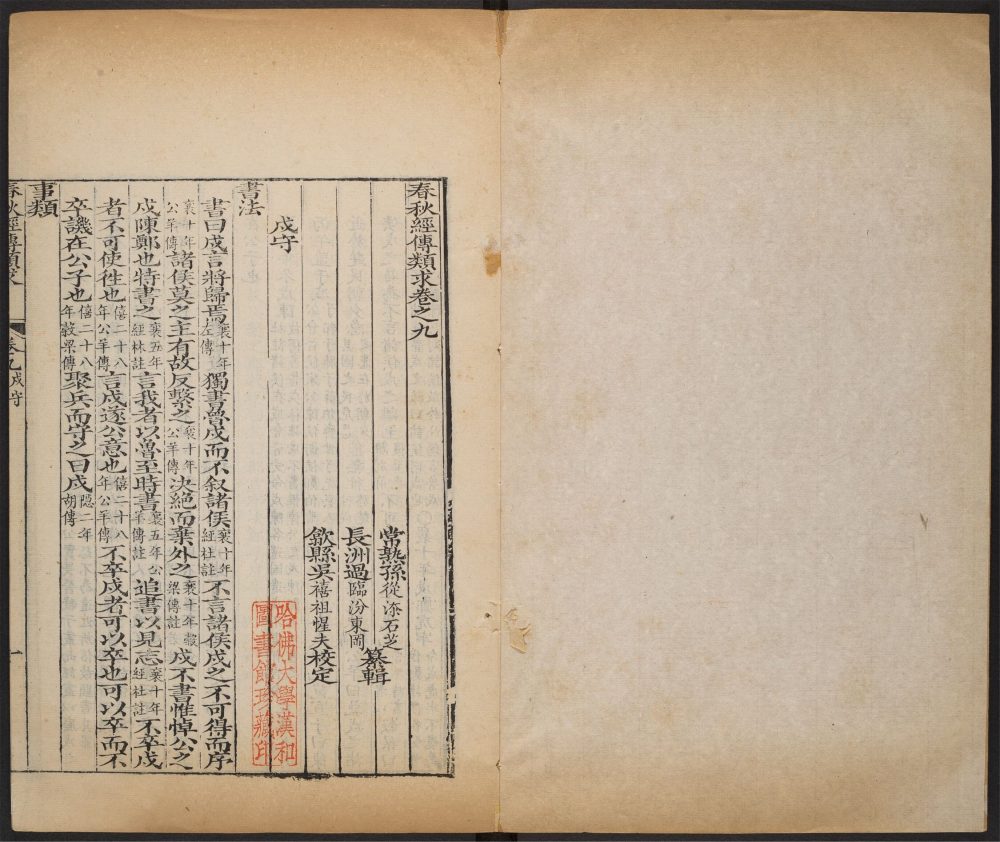 春秋經傳類求卷之九
常熟孫從添石芝
長洲過臨汾東岡
纂輯
歙縣吳禧祖惺夫校定
戍守
書法
書曰戍言將歸焉襄十年左傳獨書魯戍而不叙諸侯襄十年經杜註不言諸侯戍之不可得而序
襄十年公羊傳諸侯莫之主有故反繫之襄十年公羊傳決絕而棄外之襄十年穀梁傳註戍不書惟悼公之
戍陳鄭也特書之襄五年經林註言我者以魯至時書襄五年公羊傳註追書以見志襄十年經杜註不卒戍
者不可使往也僖二十八年公羊傳言戍遂公意也僖二十八年公羊傳不卒戍者可以卒也可以卒而不
卒譏在公子也僖二十八年穀梁傳聚兵而守之曰戍隱二年胡傳
事類
春秋經傳類求
卷九戍守
一
哈佛大學漢和
圖書館珍藏印